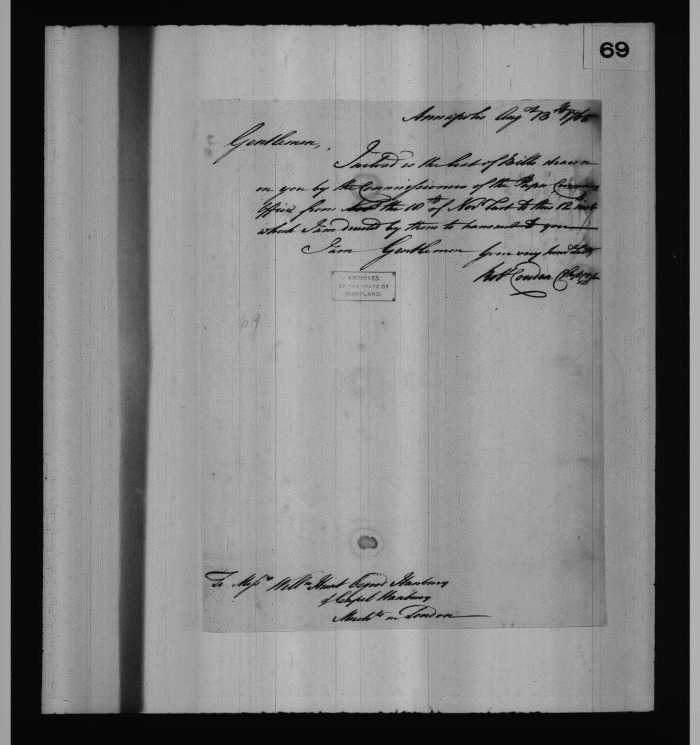 69
Annapolis Aug.t 13th 176
Gentlemen,
Inclosed is the list of Bills drawn
on you by the Commissioners of the Paper Currency
Office from the 10th of Nov.r last to this 12th
which I am directed by them to transmit to you
I am Gentlemen your very hum.
Rob.t Couden
ARCHIVES
OF THE STATE OF
MARYLAND.
69
To Mess.rs Will.m Hunt Osgood Hanbury
& Capel Hanbury
Merch.ts in London